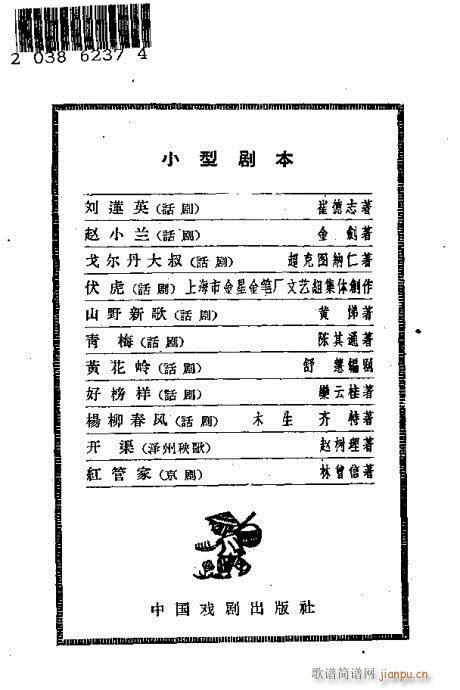 2 038 6237 4
小型剧本
刘莲英(話剧) 崔德志著
赵小兰(話剧) 金剑著
戈尔丹大叔(話剧) 超克图納仁著
伏虎(話剧) 上海市金星金笔厂文艺組集体創作
山野新歌(話剧) 黄悌著
青梅(話剧) 陈其通著
黃花岭(話剧) 舒慧編剧
好榜样(話剧) 樂云桂著
楊柳春风(話剧) 木生 齐特著
开渠(泽州秧歌) 赵树理著
紅管家(京剧) 林曾信著
中国戏剧出版社
歌谱简谱网
jianpu.cn